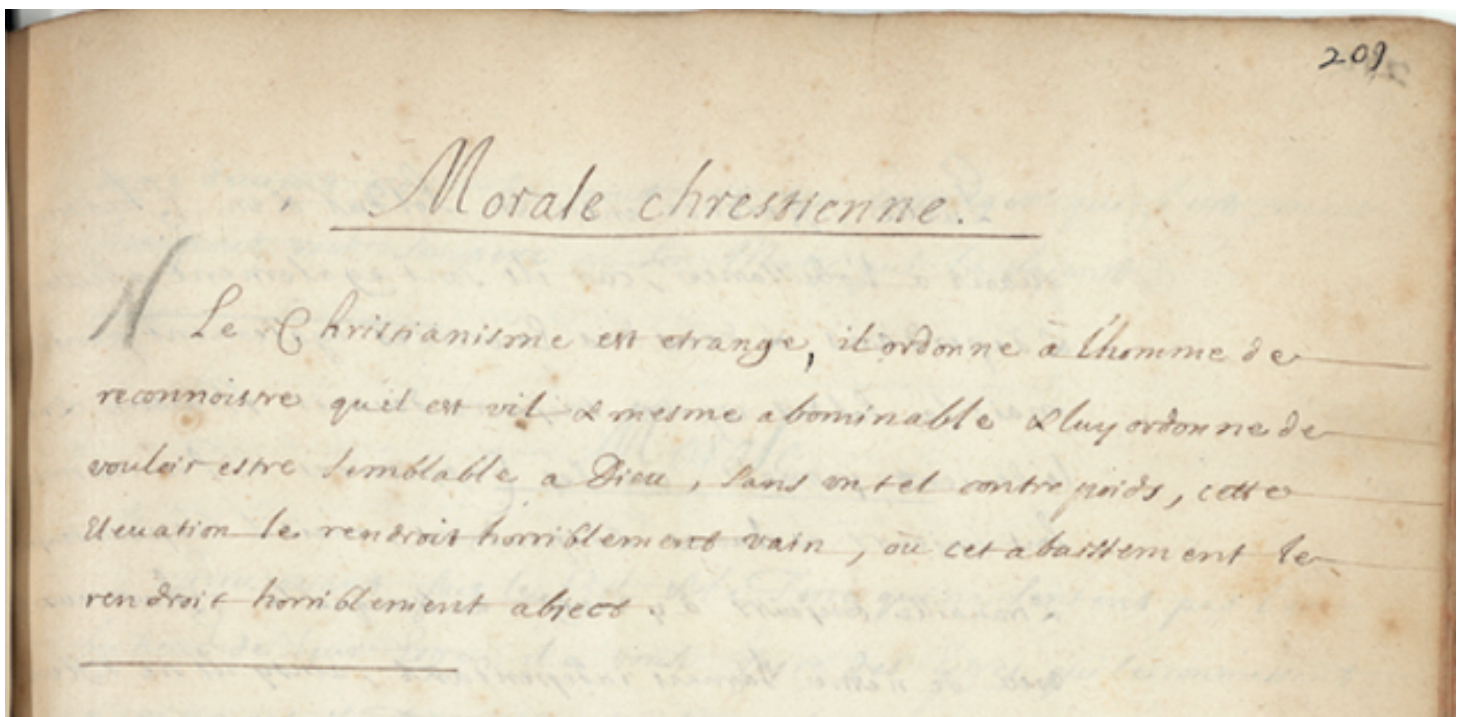 209
Morale chrestienne.
Le Christianisme est etrange, il ordonne a l'homme de
reconnoistre quil est vil & mesme abominable & luy ordonne de
vouloir estre semblable a Dieu, sans un tel contrepoids, cette
elevation le rendroit horriblement vain, ou cet abaissement le
rendroit horriblement abject.